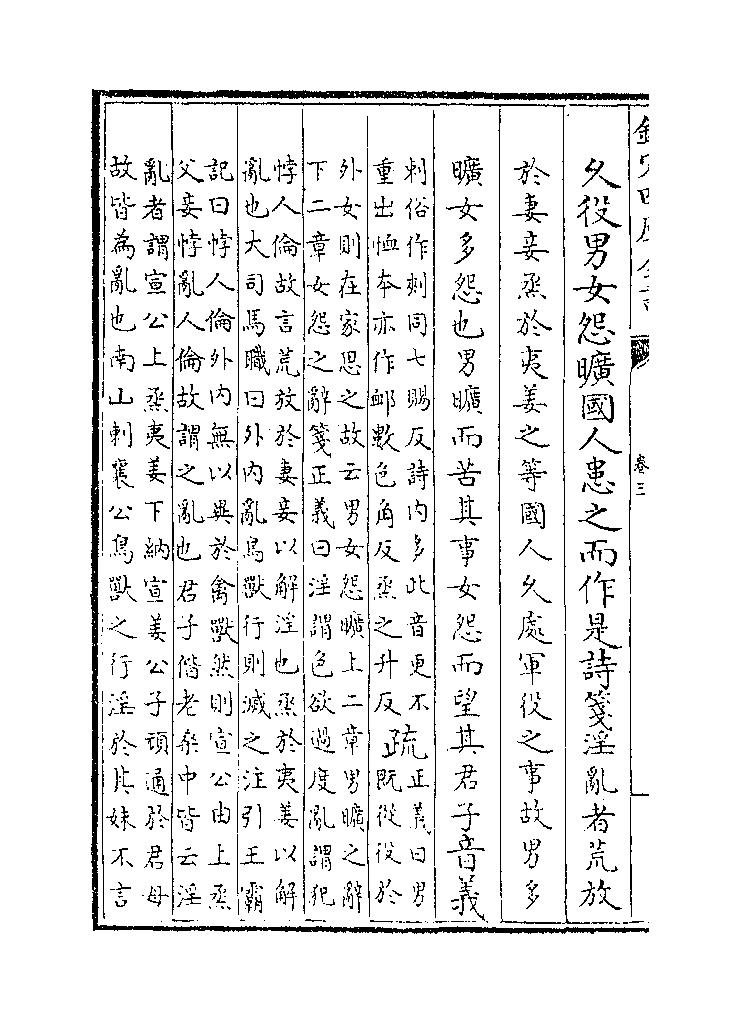 欽定四庫全書 卷三
久役男女怨曠國人患之而作是詩箋淫亂者荒放
於妻妾烝於夷姜之等國人久處軍役之事故男多
曠女多怨也男曠而苦其事女怨而望其君子音義
刺俗作刾同七賜反詩内多此音更不
重出恤本亦作卹數色角反烝之升反
疏
正義曰男
既從役於
外女則在家思之故云男女怨曠上二章男曠之辭
下二章女怨之辭箋正義曰淫謂色欲過度亂謂犯
悖人倫故言荒放於妻妾以解淫也烝於夷姜以解
亂也大司馬職曰外内亂鳥獸行則滅之注引王霸
記曰悖人倫外内無以異於禽獸然則宣公由上烝
父妾悖亂人倫故謂之亂也君子偕老桑中皆云淫
亂者謂宣公上烝夷姜下納宣姜公子頑通於君母
故皆為亂也南山刺襄公鳥獸之行淫於其妹不言